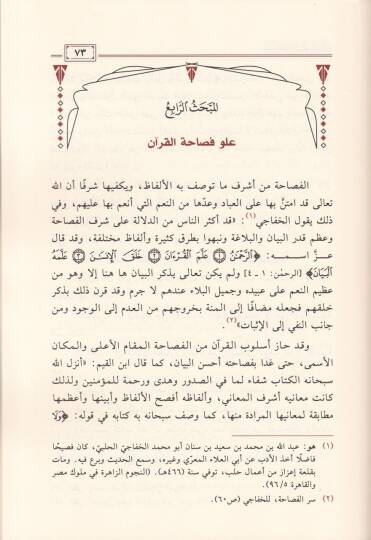 ٧٣
المبحث الرابع
علو فصاحة القرآن
الفصاحة من أشرف ما توصف به الألفاظ، ويكفيها شرفًا أن الله
تعالى قد امتنَّ بها على العباد وعدّها من النعم التي أنعم بها عليهم، وفي
ذلك يقول الخفاجي(١): «قد أكثر الناس من الدلالة على شرف الفصاحة
وعظم قدر البيان والبلاغة ونبهوا بطرق كثيرة وألفاظ مختلفة، وقد قال
عزَّ اسمه: ﴿ٱلرَّحۡمَٰنُ ۝ عَلَّمَ ٱلۡقُرۡءَانَ ۝ خَلَقَ ٱلۡإِنسَٰنَ ۝ عَلَّمَهُ
ٱلۡبَيَانَ﴾ (الرحمٰن: ١ ـ ٤) ولم يكن تعالى يذكر البيان ها هنا إلا وهو من
عظيم النعم على عبيده وجميل البلاء عندهم لا جرم وقد قرن ذلك بذكر
خلقهم فجعله مضافًا إلى المنة بخروجهم من العدم إلى الوجود ومن
جانب النفي إلى الإثبات»(٢).
وقد حاز أسلوب القرآن من الفصاحة المقام الأعلى والمكان
الأسمى، حتى غدا بفصاحته أحسن البيان، كما قال ابن القيم: «أنزل الله
سبحانه الكتاب شفاء لما في الصدور وهدى ورحمة للمؤمنين ولذلك
كانت معانيه أشرف المعاني، وألفاظه أفصح الألفاظ وأبينها وأعظمها
مطابقة لمعانيها المرادة منها، كما وصف سبحانه به كتابه في قوله: ﴿وَلَا
(١) هو: عبد الله بن محمد بن سعيد بن سنان أبو محمد الخفاجي الحلبي، كان فصيحًا
فاضلًا أخذ الأدب عن أبي العلاء المعرّي وغيره، وسمع الحديث وبرع فيه. ومات
بقلعة إعزاز من أعمال حلب، توفي سنة (٤٦٦هـ). (النجوم الزاهرة في ملوك مصر
والقاهرة ٩٦/٥).
(٢) سر الفصاحة، للخفاجي (ص٦٠).